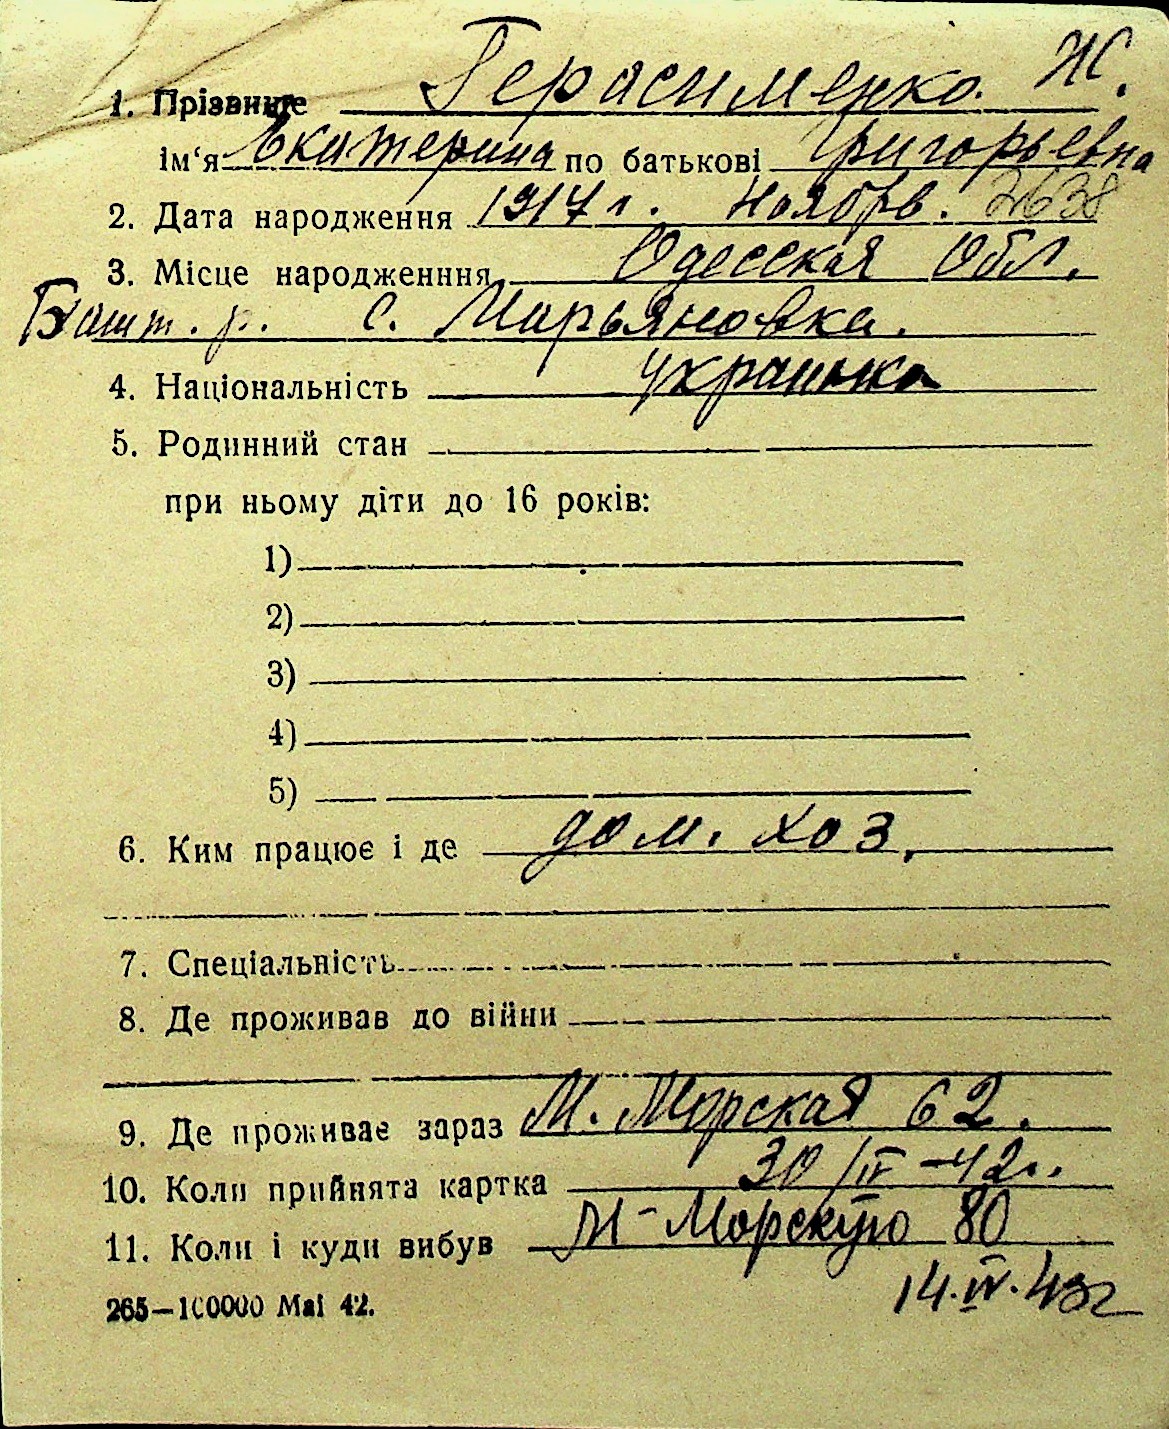 1. Прізвище Герасименко. Ж.
ім‘я Екатерина по батькові Григорьевна
2. Дата народження 1917 г. Ноябрь. 2638
3. Місце народженння Одесская Обл.
Башт. р. с. Марьяновка.
4. Національність украинка
5. Родинний стан
при ньому діти до 16 років:
1)
2)
3)
4)
5)
6. Ким працює і де дом. хоз.
7. Спеціальність
8. Де проживав до війни
9. Де проживає зараз М. Морская 62.
10. Коли прийнята картка 30/IV-42г.
11. Коли і куди вибув М-Морскую 80
14.IV.43г
265—100000 Mai 42.